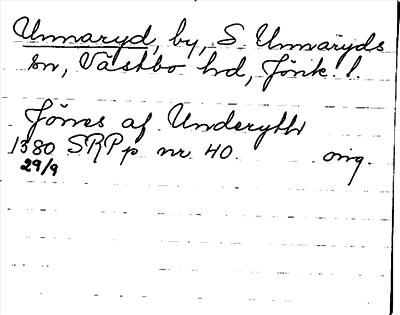 Unnaryd, by, S. Unnaryds
sn, Västbo hd, Jönk. l.
Jönes af Underythr
1380 SRPp nr 40. orig.
29/9